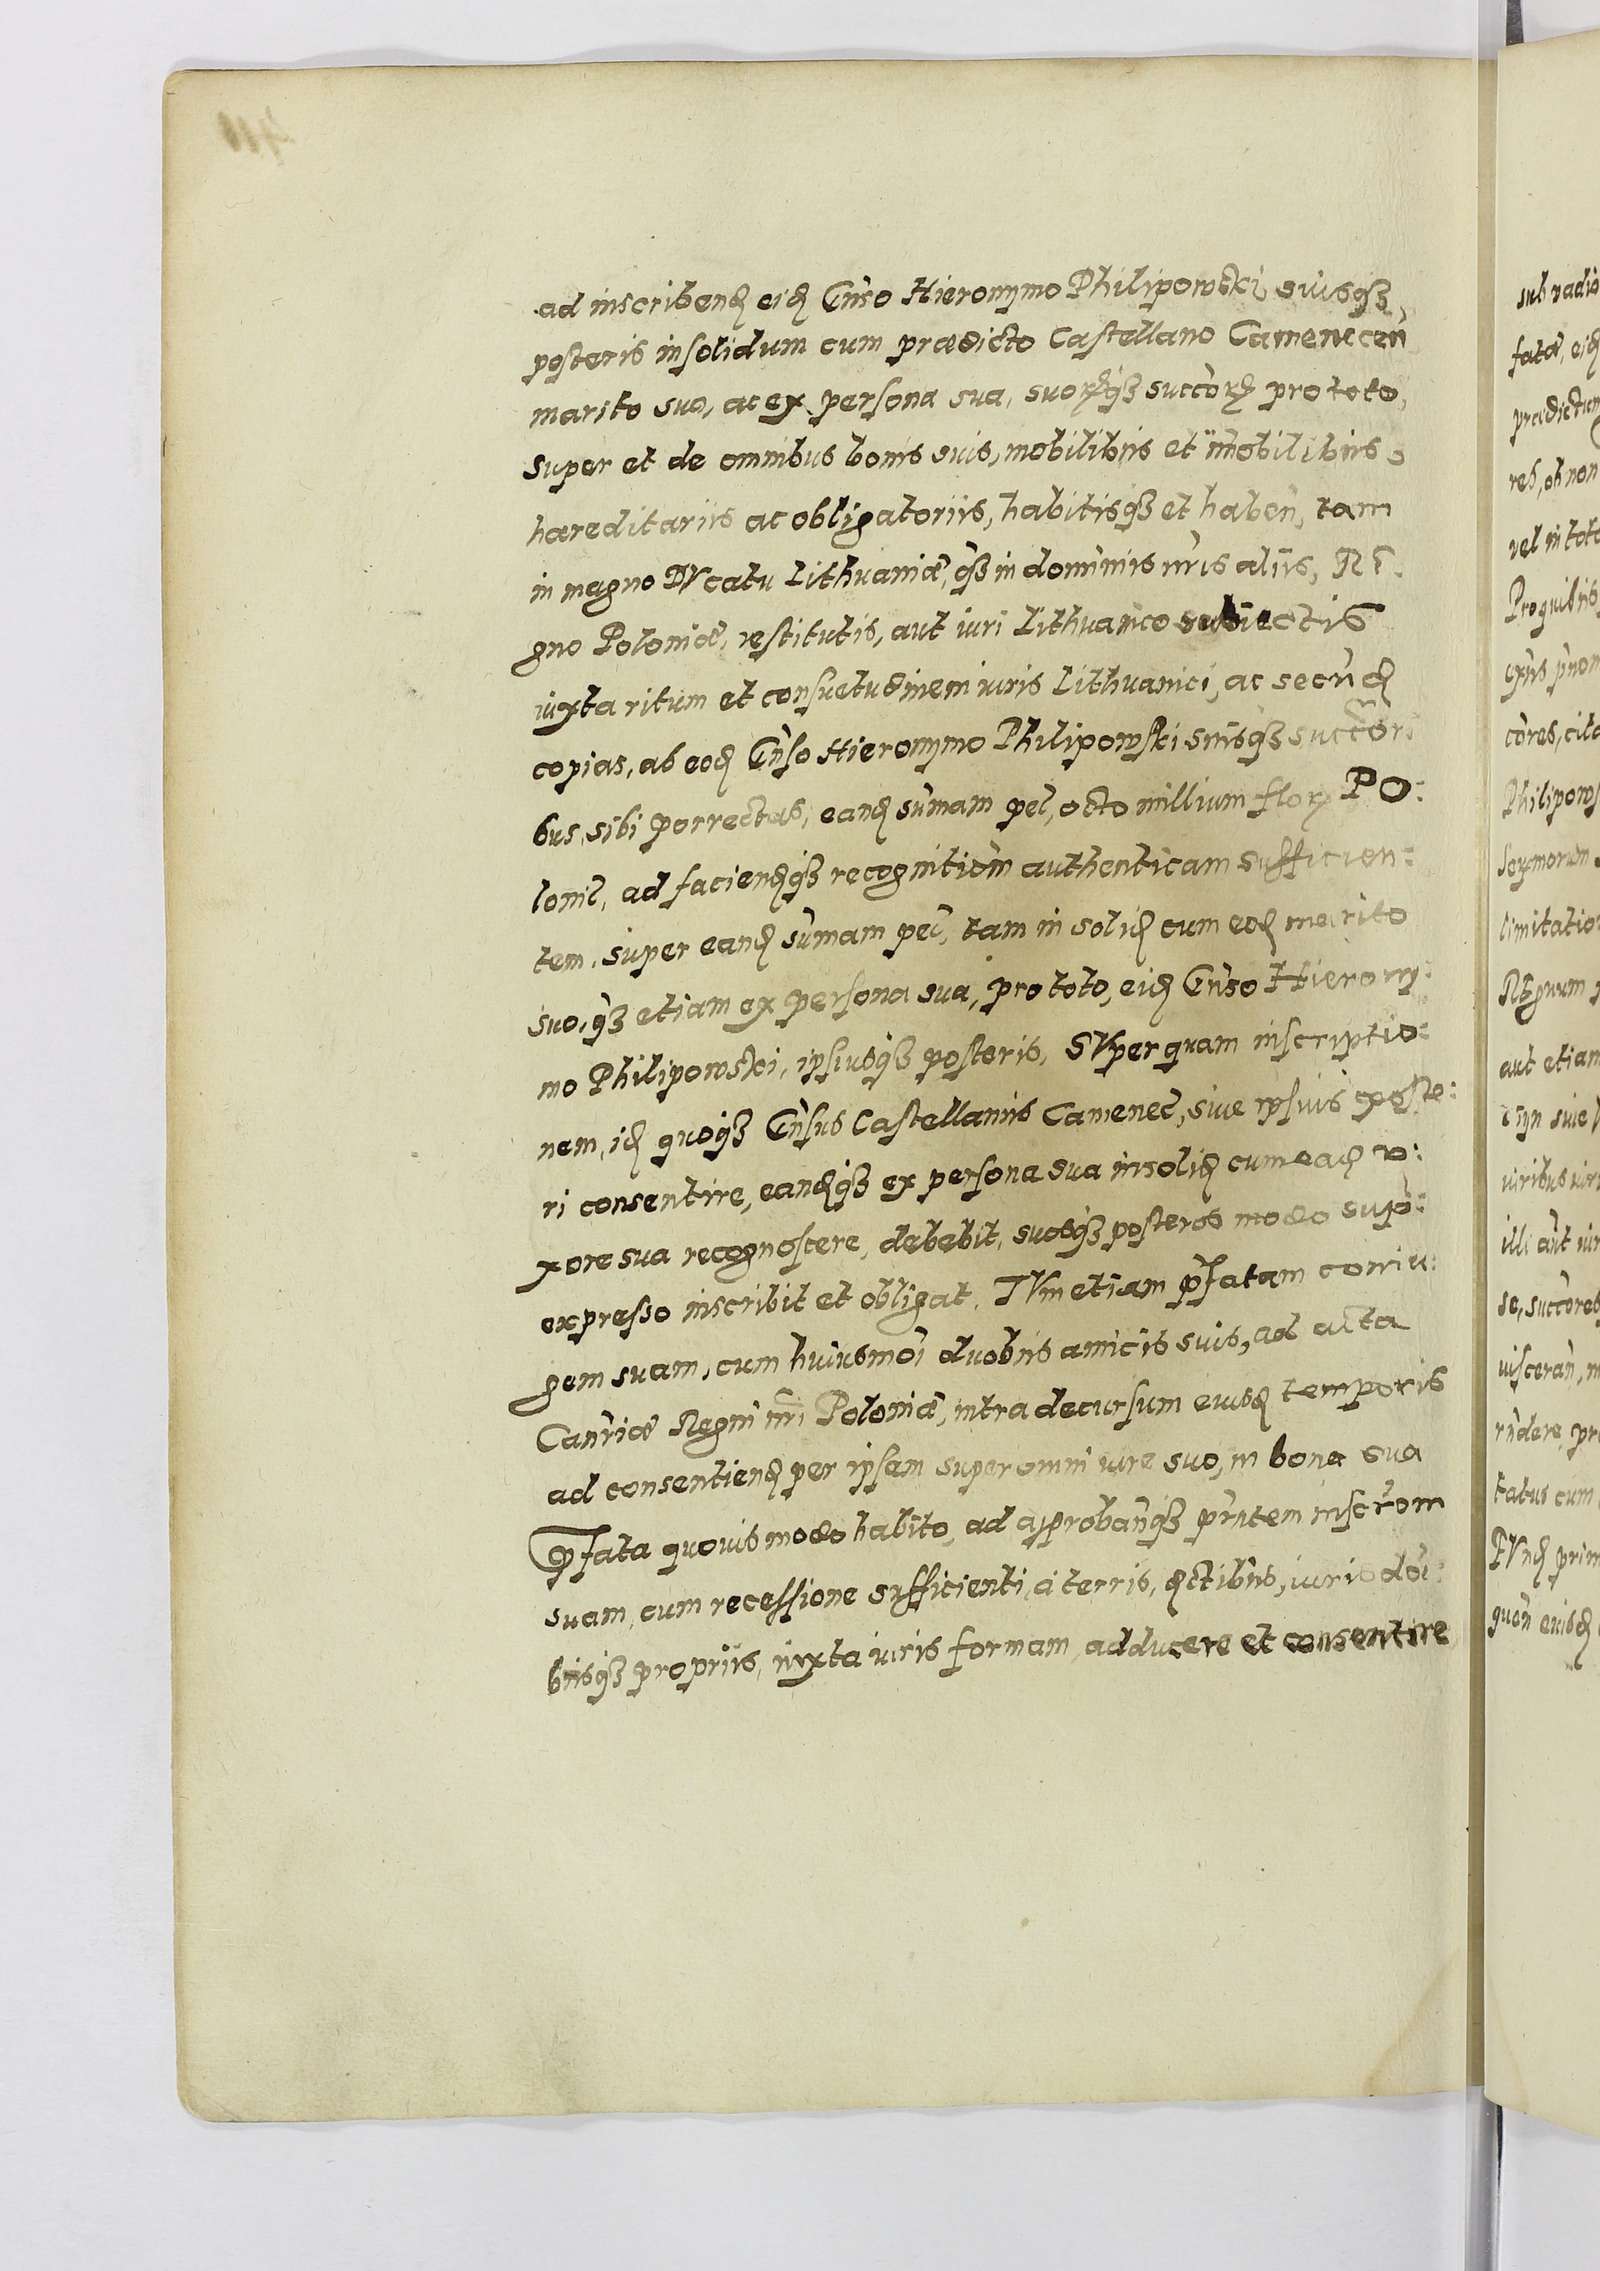 ad inscribenꝺ eiꝺ Gnso Hieronymo Philipowski, suisqꝫ
posteris insolidum cum prædicto Castellano Camenecen
marito suo, ac ex persona sua, suorꝝqꝫ succorꝝ pro toto,
super et de omnibus bonis suis, mobilibus et imobilibus,
hæreditariis ac obligatoriis, habitisqꝫ et haben, tam
in magno DVcatu Lithuaniæ, qꝫ in dominiis nris aliis, RE:
gno Poloniæ, restitutis, aut iuri Lithuanico subiectis
iuxta ritum et consuetudinem iuris Lithuanici, ac secunꝺ
copias, ab eoꝺ Gnso Hieronymo Philipowski suisqꝫ succor:
bus, sibi porrectas, eanꝺ sumam pec, octo millium florꝝ PO:
lonic, ad facienꝺqꝫ recognitiom authenticam sufficien:
tem, super eanꝺ sumam pec, tam in soliꝺ cum eoꝺ marito
suo, qꝫ etiam ex persona sua, pro toto, eiꝺ Gnso Hierony:
mo Philipowski, ipsiusqꝫ posteris, SVper quam inscriptio:
nem, iꝺ quoqꝫ Gnsus Castellanus Camenec, siue ipsius poste:
ri consentire, eanꝺqꝫ ex persona sua insoliꝺ cum eaꝺ v:
xore sua recognoscere, debebit, suosqꝫ posteros modo supra
expresso inscribit et obligat. TVm etiam pfatam coniu:
gem suam, cum huiusmoi duobus amicis suis, ad acta
Canriæ Regni nri Poloniæ, intra decursum eiusꝺ temporis
ad consentienꝺ per ipsam super omni iure suo, in bona sua
Pfata quouis modo habito, ad approbanqꝫ prntem inscrom
suam, cum recessione sufficienti, a terris, ꝺctibus, iurisdoi:
busqꝫ propriis, iuxta iuris formam, adducere et consentire
sub vadio
fatæ, eiꝺ
prædictum
vel in toto
Pro quibus
cores, cita
Philipows
limitatio
aut etiam
viribus iuri
illi aut iur
se, succores
visceran, m
rndere, pr
tatus cum
PVnꝺ prim
quon eiusꝺ